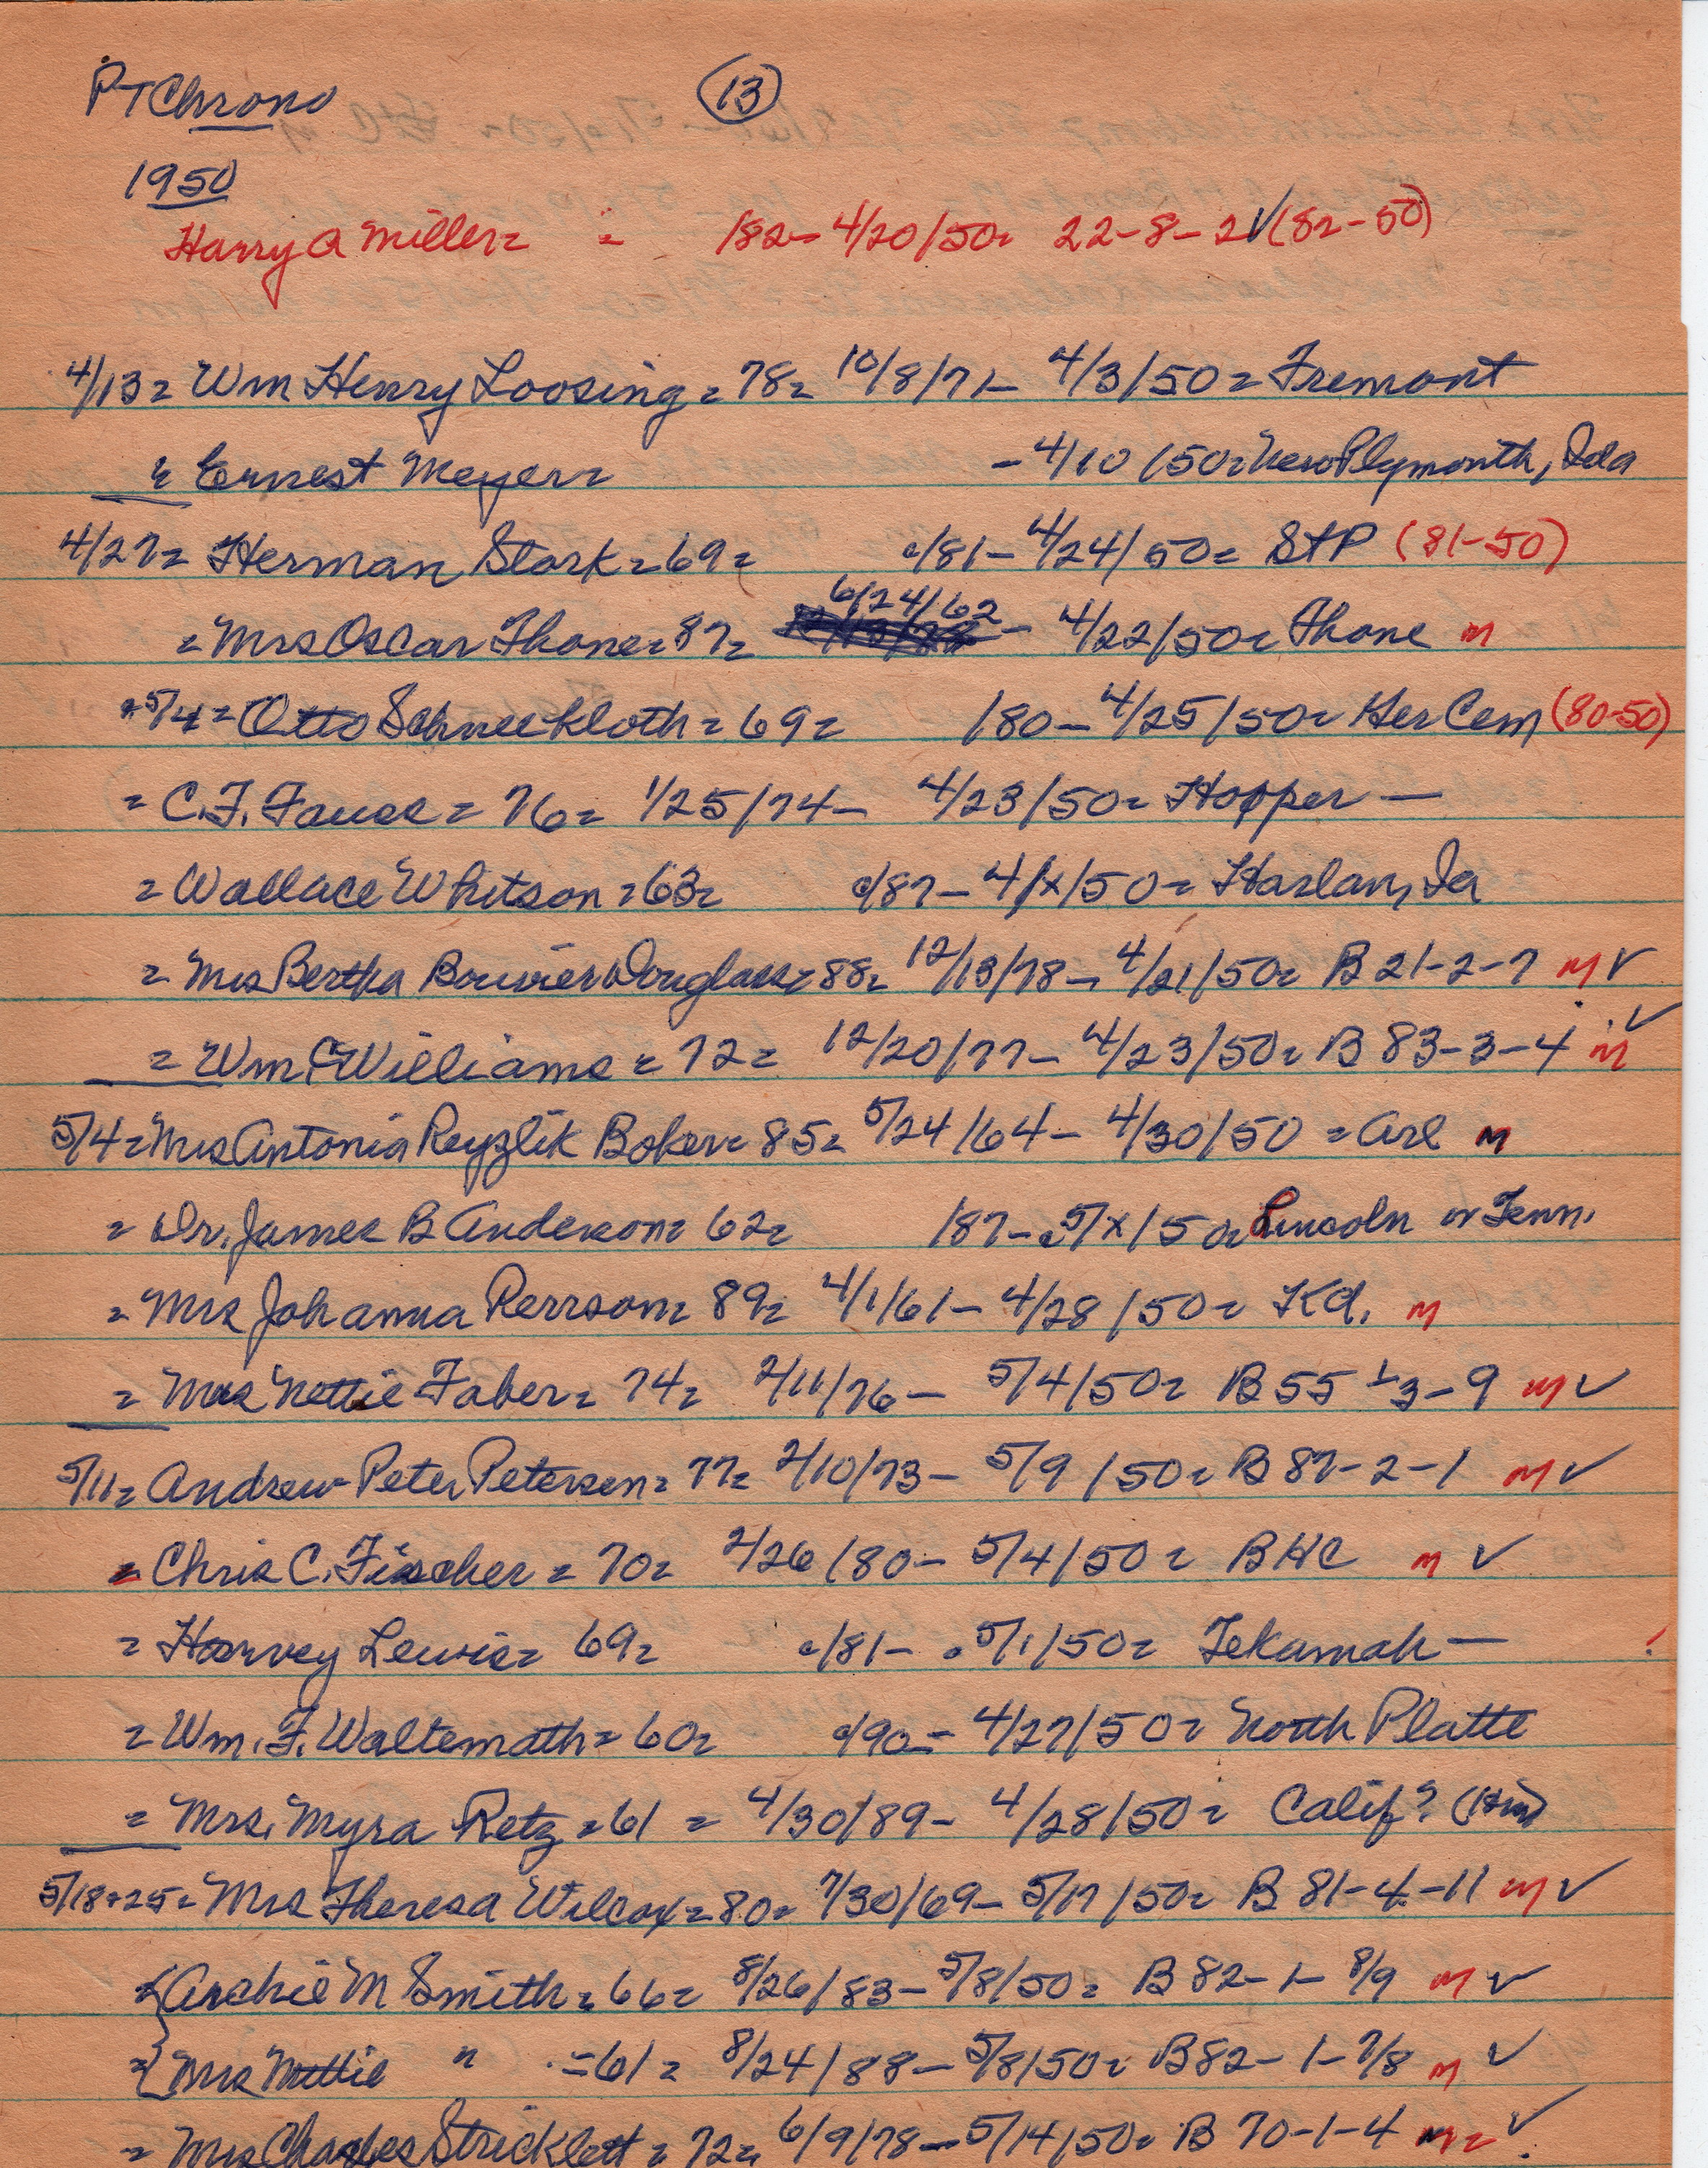 PT Chrono (13)
1950
Harry A Miller = = 1882 - 4/20/50 = 22-8-2 ✓ (82-50)
4/13 = Wm Henry Loosing = 78 = 10/8/71 - 4/3/50 = Fremont
= Ernest Meyer = - 4/10/50 = New Plymouth, Ida
4/27 = Herman Stork = 69 = c/81 - 4/24/50 = StP (81-50)
= Mrs Oscar Thone = 87 = 6/24/62 - 4/22/50 = Thone m
= 5/4 = Otto Schneekloth = 69 = /80 - 4/25/50 = Her Cem (80-50)
= C.F. = 76 = 1/25/74 - 4/23/50 = Hopper —
= Wallace Whitson = 63 = c/87 - 4/x/50 = Harlan, Ia
= Mrs Bertha Bouvier Douglass = 88 = 12/13/78 - 4/21/50 = B 21-2-7 m ✓
= Wm C Williams = 72 = 12/20/77 - 4/23/50 = B 83-3-4 m ✓
5/4 = Mrs Antonia Reyzlik Boker = 85 = 5/24/64 - 4/30/50 = Arl m
= Dr. James B Anderson = 62 = /87 - 5/x/50 = Lincoln or Tenn.
= Mrs Johanna Perrson = 89 = 4/1/61 - 4/28/50 = Kd. m
= Mrs Nettie Faber = 74 = 2/11/76 - 5/4/50 = B 55-3-9 m ✓
5/11 = Andrew Peter Petersen = 77 = 2/10/73 - 5/9/50 = B 87-2-1 m ✓
= Chris C. Fischer = 70 = 2/26/80 - 5/4/50 = BHC m ✓
= Harvey Lewis = 69 = c/81 - 5/1/50 = Tekamah —
= Wm. F. Waltemath = 60 = c/90 = - 4/27/50 = North Platte
= Mrs. Myra Retz = 61 = 4/30/89 - 4/28/50 = Calif?
5/18+25 = Mrs Theresa Wilcox = 80 = 7/30/69 - 5/17/50 = B 81-4-11 m ✓
{ Archie M Smith = 66 = 8/26/83 - 5/8/50 = B 82-1-8/9 m ✓
= { Mrs Mettie " = 61 = 8/24/88 - 5/8/50 = B 82-1-7/8 m ✓
= Mrs Charles Stricklett = 72 = 6/9/78 - 5/14/50 = B 70-1-4 m = ✓